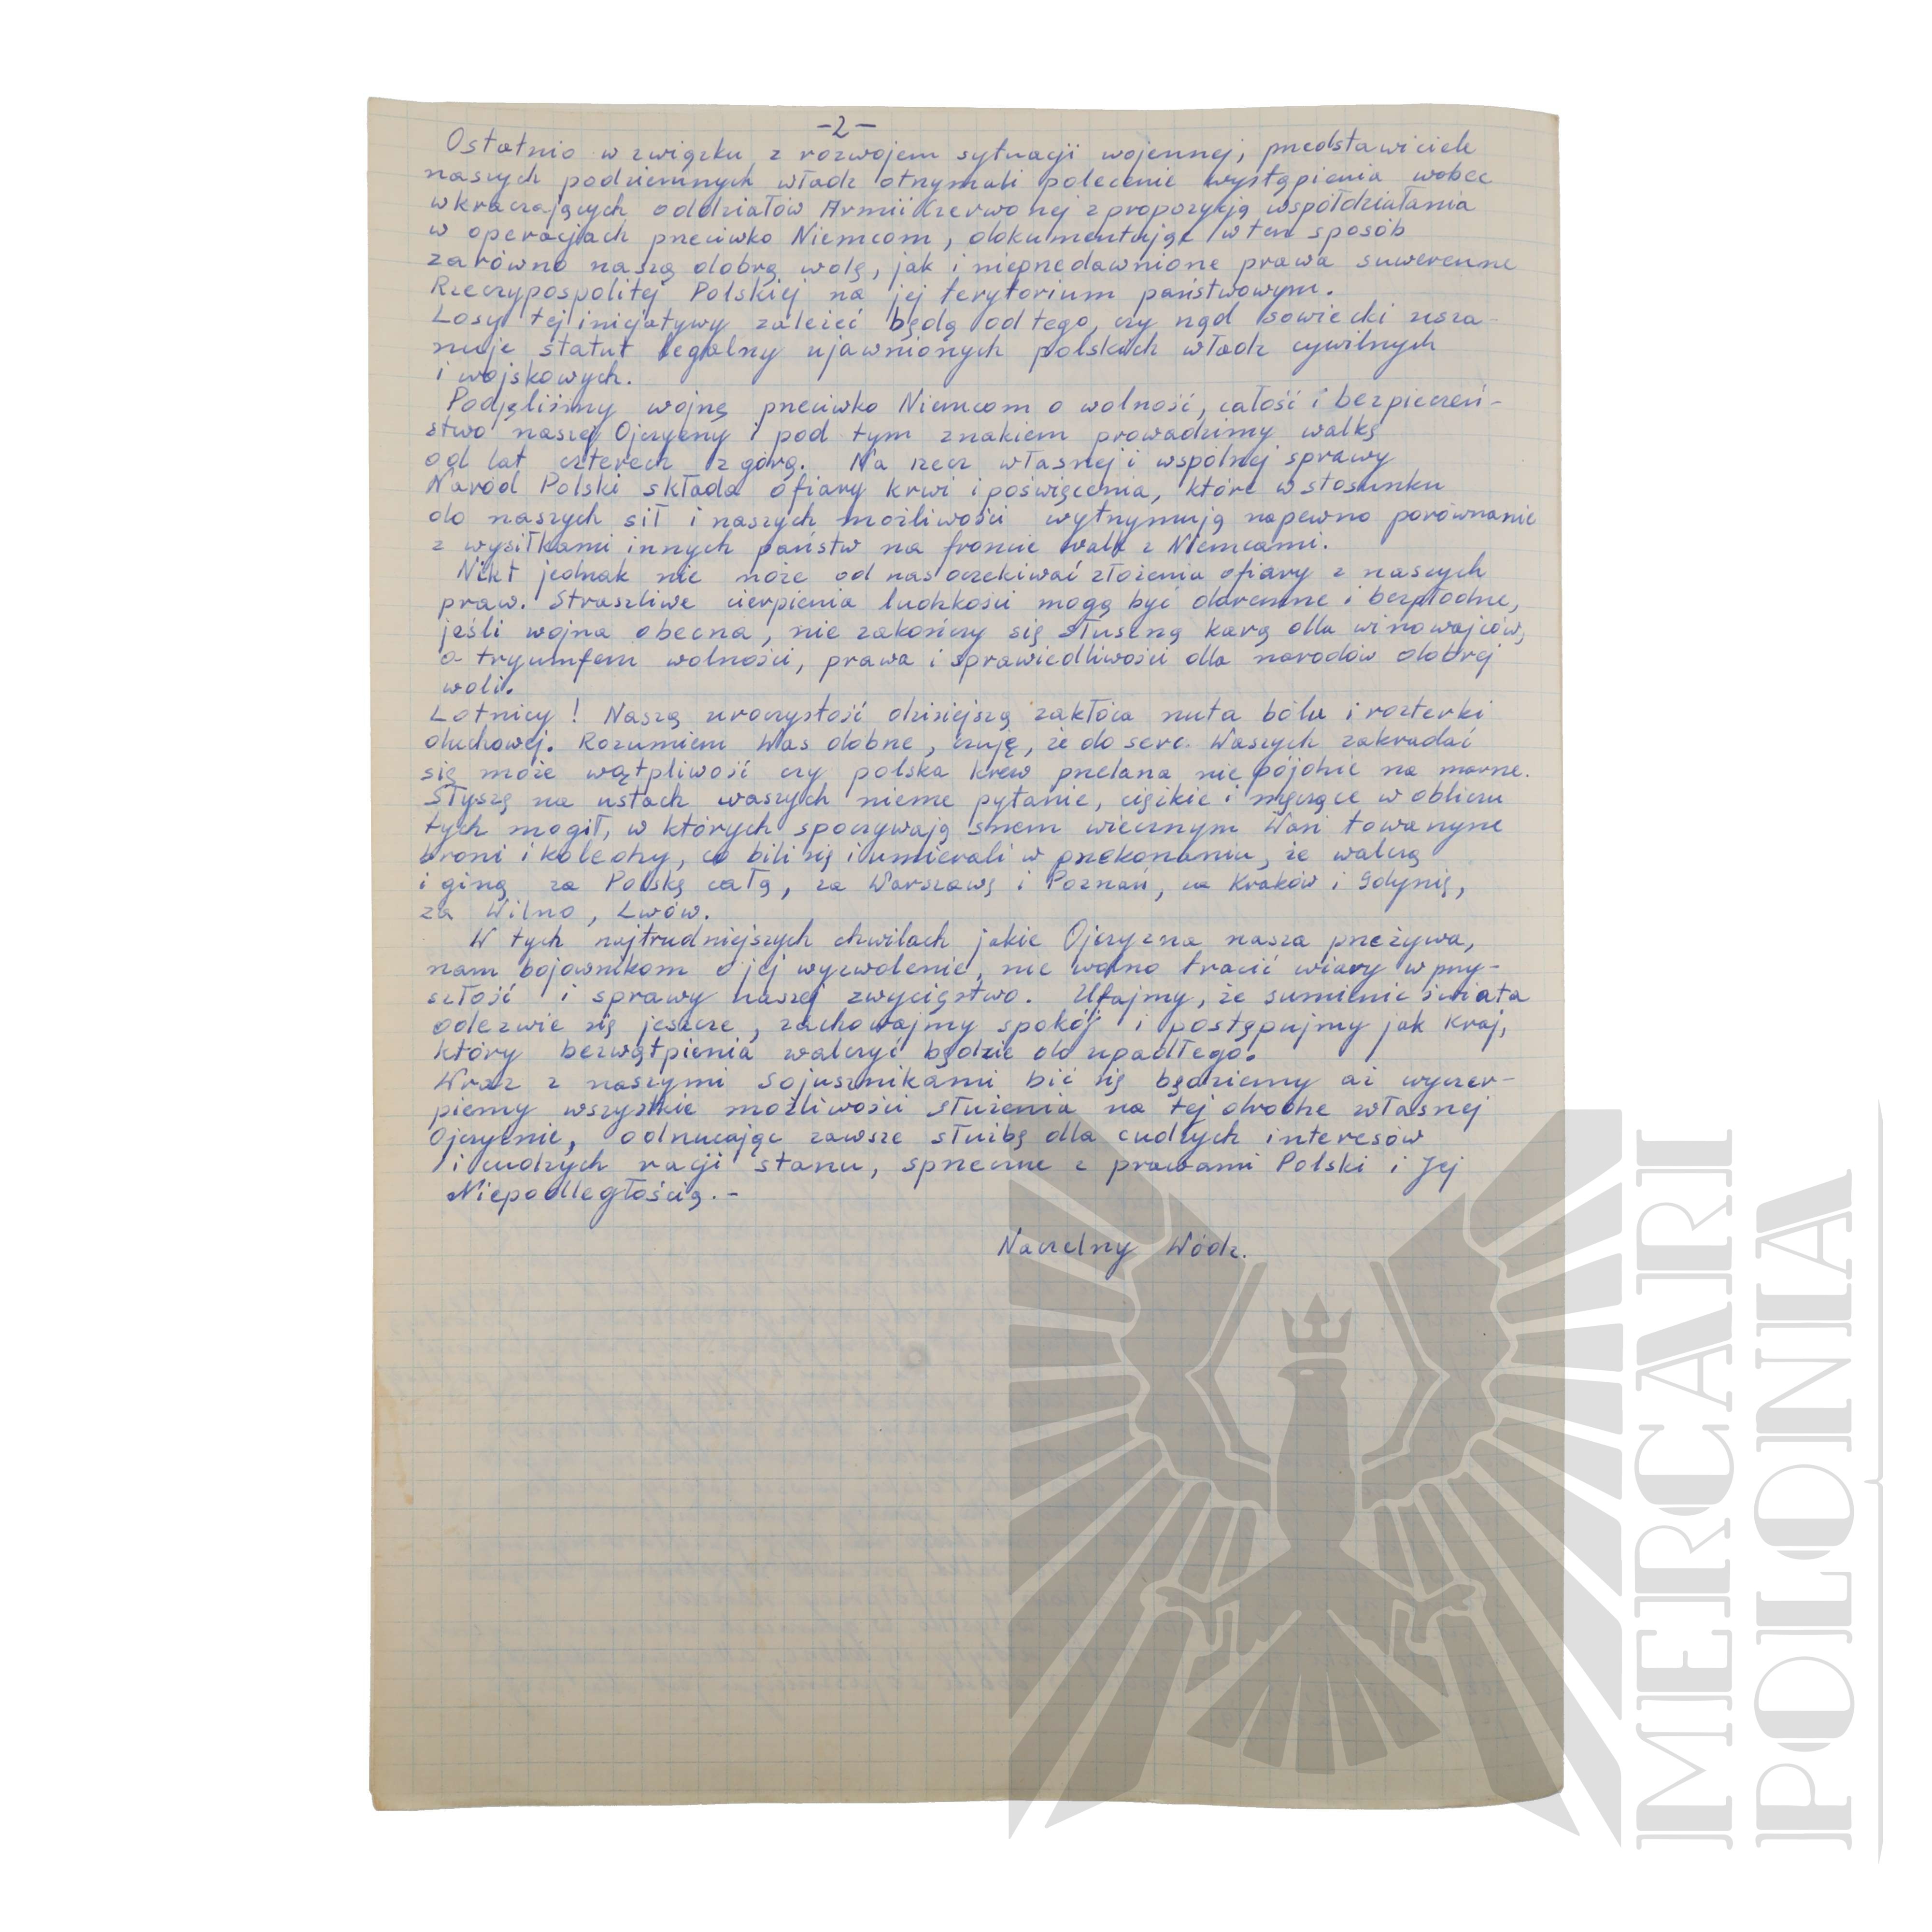 -2-
Ostatnio w związku z rozwojem sytuacji wojennej, przedstawiciele
naszych podziemnych władz otrzymali polecenie wystąpienia wobec
wkraczających oddziałów Armii Czerwonej z propozycją współdziałania
w operacjach przeciwko Niemcom, dokumentując w ten sposób
zarówno naszą dobrą wolę, jak i nieprzedawnione prawa suwerenne
Rzeczypospolitej Polskiej na jej terytorium państwowym.
Losy tej inicjatywy zależeć będą od tego, czy rząd sowiecki usza-
nuje statut legalny ujawnionych polskich władz cywilnych
i wojskowych.
Podjęliśmy wojnę przeciwko Niemcom o wolność, całość i bezpieczeń-
stwo naszej Ojczyzny i pod tym znakiem prowadzimy walkę
od lat czterech z górą. Na rzecz własnej i wspólnej sprawy
Naród Polski składa ofiary krwi i poświęcenia, które w stosunku
do naszych sił i naszych możliwości wytrzymują napewno porównanie
z wysiłkami innych państw na froncie walk z Niemcami.
Nikt jednak nie może od nas oczekiwać złożenia ofiary z naszych
praw. Straszliwe cierpienia ludzkości mogą być daremne i bezpłodne,
jeśli wojna obecna, nie zakończy się słuszną karą dla winowajców,
a tryumfem wolności, prawa i sprawiedliwości dla narodów dobrej
woli.
Lotnicy! Naszą uroczystość dzisiejszą zakłóca nuta bólu i rozterki
duchowej. Rozumiem Was dobrze, czuję, że do serc Waszych zakradać
się może wątpliwość czy polska krew przelana nie pójdzie na marne.
Słyszę na ustach waszych nieme pytanie, ciężkie i męczące w obliczu
tych mogił, w których spoczywają snem wiecznym Wasi towarzysze
broni i koledzy, co bili się i umierali w przekonaniu, że walczą
i giną za Polskę całą, za Warszawę i Poznań, za Kraków i Gdynię,
za Wilno, Lwów.
W tych najtrudniejszych chwilach jakie Ojczyzna nasza przeżywa,
nam bojownikom o jej wyzwolenie, nie wolno tracić wiary w przy-
szłość i sprawy naszej zwycięstwo. Ufajmy, że sumienie świata
odezwie się jeszcze, zachowajmy spokój i postępujmy jak Kraj,
który bezwątpienia walczyć będzie do upadłego.
Wraz z naszymi Sojusznikami bić się będziemy aż wyczer-
piemy wszystkie możliwości służenia na tej drodze własnej
Ojczyźnie, odrzucając zawsze służbę dla cudzych interesów
i cudzych racji stanu, sprzeczne z prawami Polski i Jej
Niepodległością.-
Naczelny Wódz.
MERCARI
POLONIA